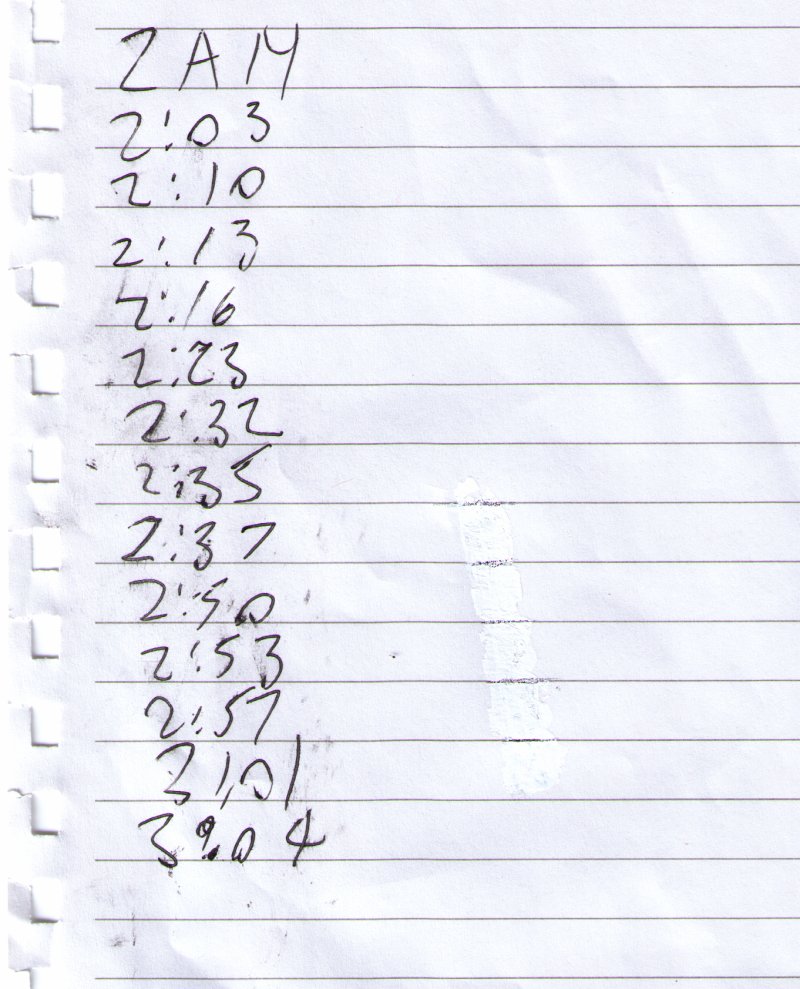 2 AM
2:03
2:10
2:13
2:16
2:23
2:32
2:35
2:37
2:50
2:53
2:57
3:01
3:04